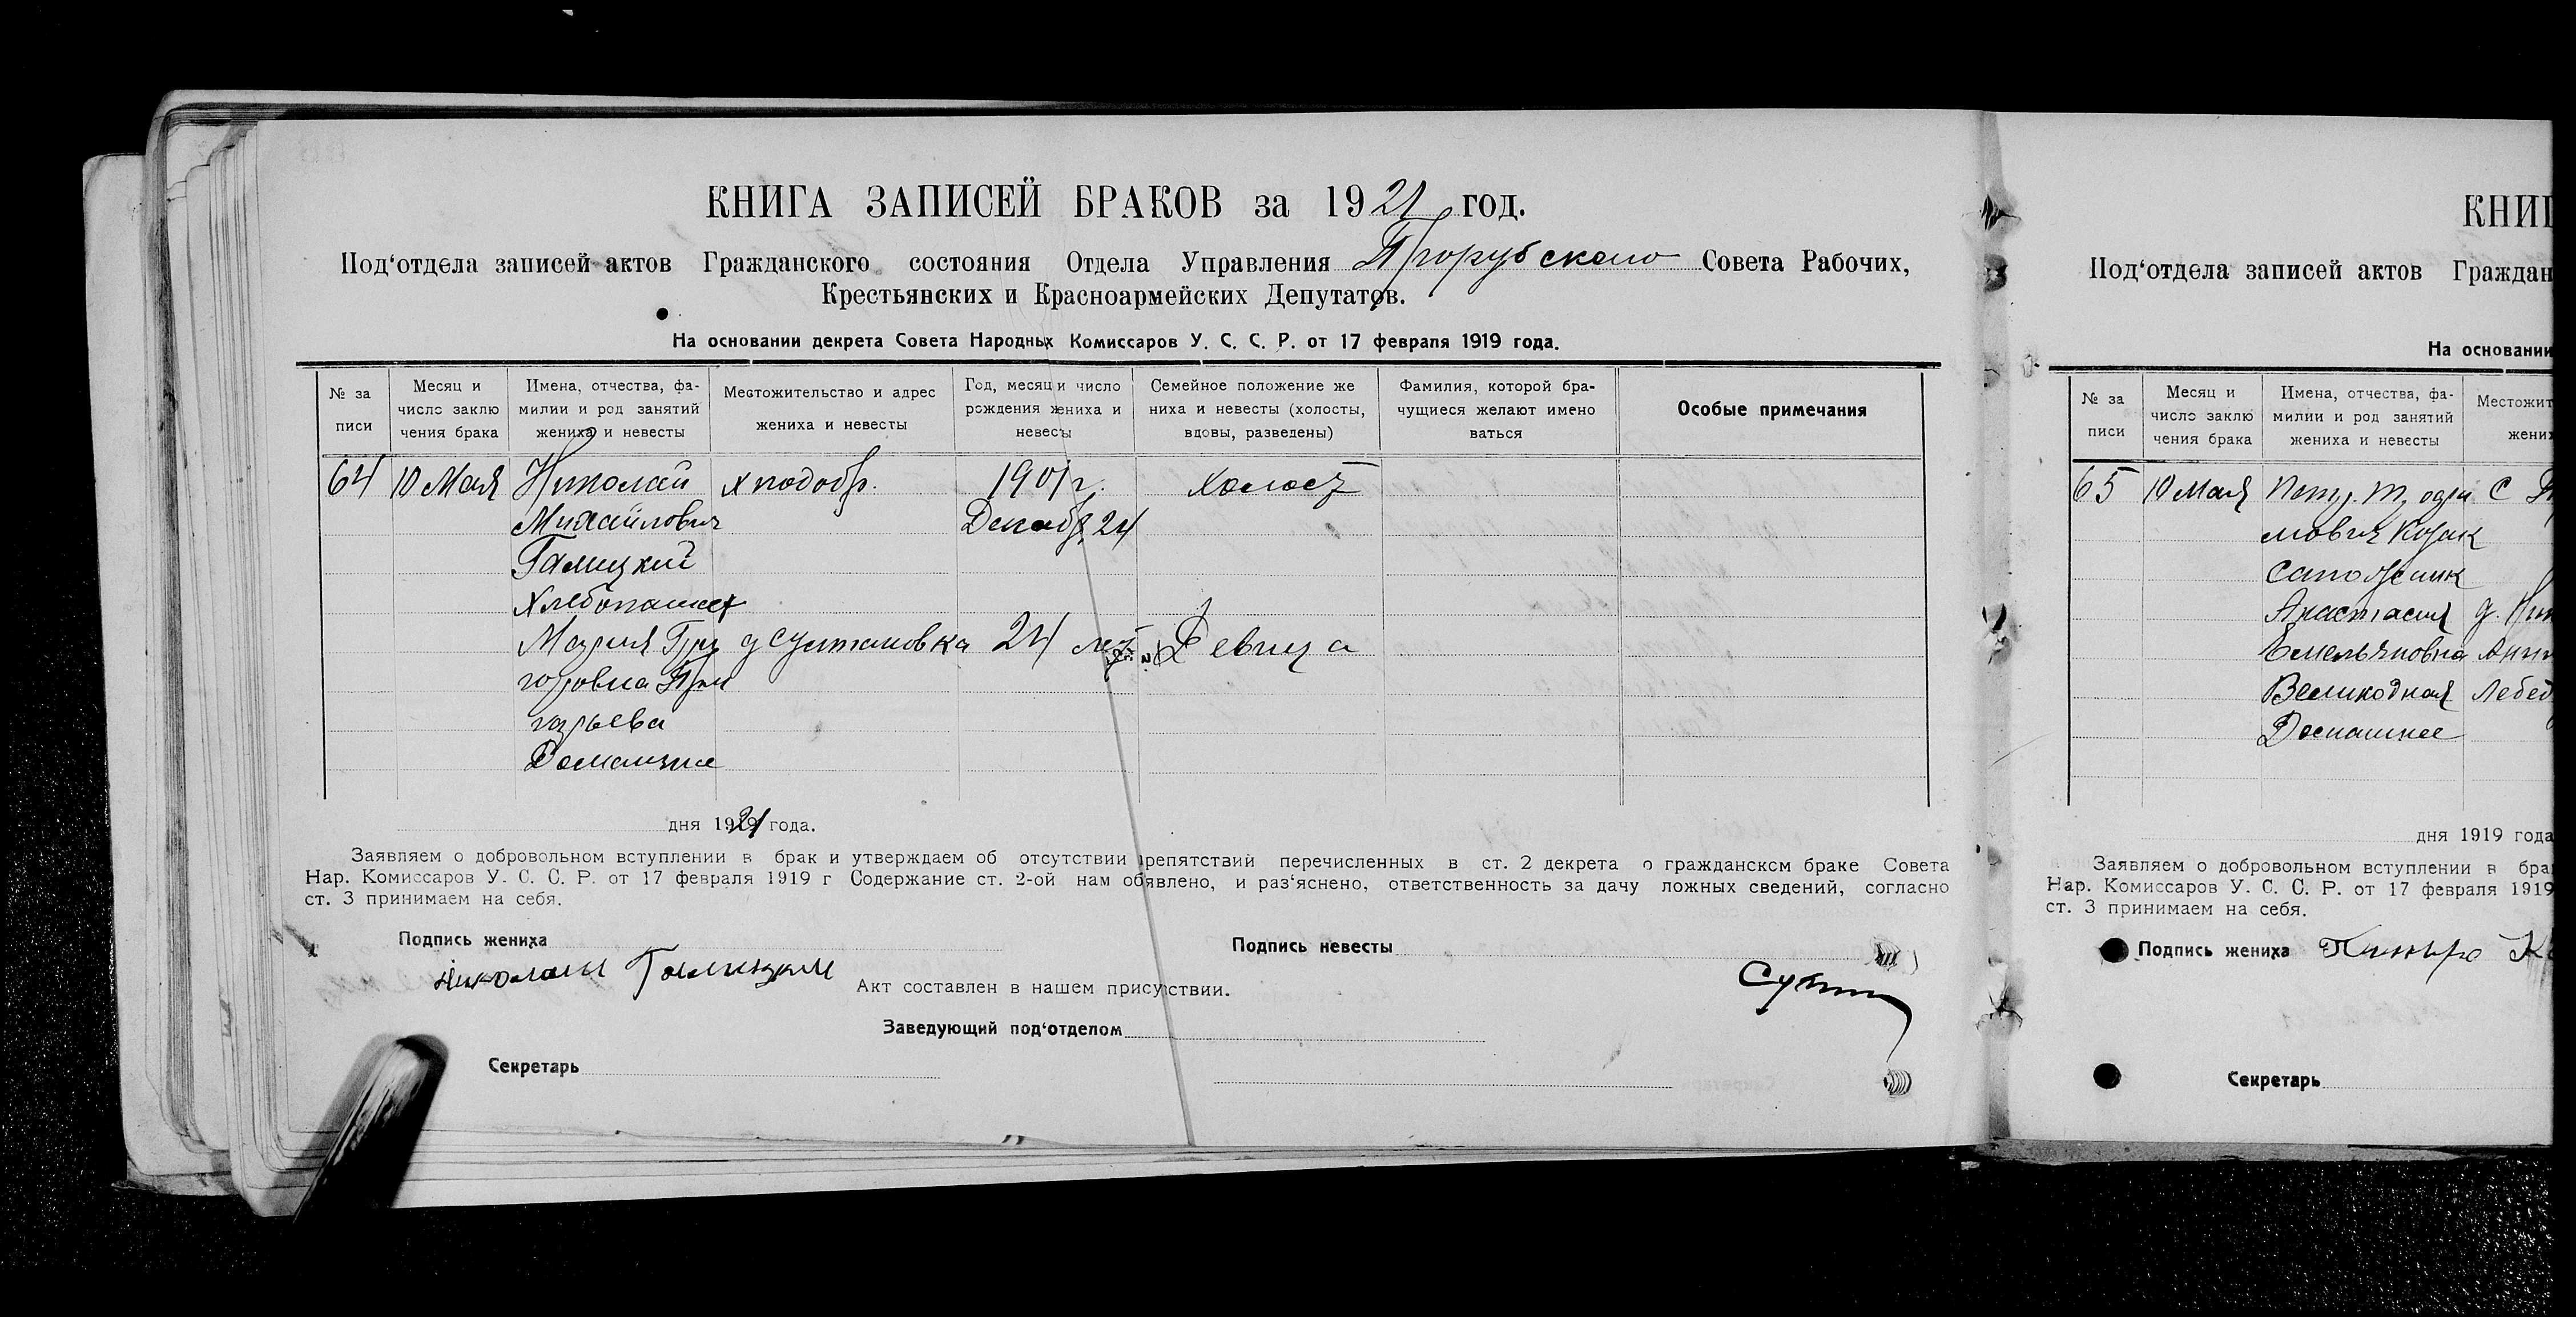 КНИГА ЗАПИСЕЙ БРАКОВ за 1921 год.
Под‘отдела записей актов Гражданского состояния Отдела Управления Прорубского Совета Рабочих,
Крестьянских и Красноармейских Депутатов.
На основании декрета Совета Народных Комиссаров У. С. С. Р. от 17 февраля 1919 года.
№ за писи
Месяц и число заклю чения брака
Имена, отчества, фа- милии и род занятий жениха и невесты
Местожительство и адрес жениха и невесты
Год, месяц и число рождения жениха и невесы
Семейное положение же ниха и невесты (холосты, вдовы, разведены)
Фамилия, которой бра- чущиеся желают имено ваться
Особые примечания
64 10 Мая Николай х подобр. 1901 г. холост
Михайлович Декабр 24
Галицкий
Хлебопашец
Мария Гри д Султановка 24 лет Девица
горовна Гри
горьева
Домашнее
дня 1921 года.
Заявляем о добровольном вступлении в брак и утверждаем об отсутствии препятствий перечисленных в ст. 2 декрета о гражданском браке Совета
Нар. Комиссаров У. С. С. Р. от 17 февраля 1919 г Содержание ст. 2-ой нам об‘явлено, и раз‘яснено, ответственность за дачу ложных сведений, согласно
ст. 3 принимаем на себя.
Подпись жениха
Подпись невесты
Николай Галицкий
Акт составлен в нашем присутствии.
Заведующий под‘отделом
Секретарь
КНИГ
Под‘отдела записей актов Граждан
На основании
№ за писи
Месяц и число заклю чения брака
Имена, отчества, фа- милии и род занятий жениха и невесты
Местожит жених
65 10 Мая С
мович Козак
Сапожник
Анастасия д.
Емельяновна
Великодная Лебед
Домашнее
дня 1919 года
Заявляем о добровольном вступлении в бра
Нар. Комиссаров У. С. С. Р. от 17 февраля 1919
ст. 3 принимаем на себя.
Подпись жениха
Секретарь